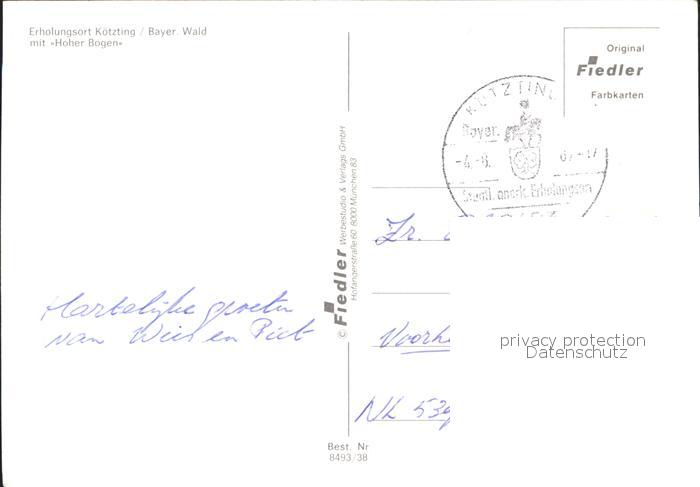 Erholungsort Kötzting / Bayer. Wald
mit »Hoher Bogen«
Original
Fiedler
Farbkarten
KÖTZTING
Bayer.
-4.-8.
67-17
Staatl. anerk. Erholungsort
© Fiedler Werbestudio & Verlags GmbH
Hofangerstraße 60 8000 München 83
Hartelijke groeten
van Wies en Piet
Voorh
NL 539
privacy protection
Datenschutz
Best. Nr
8493/38